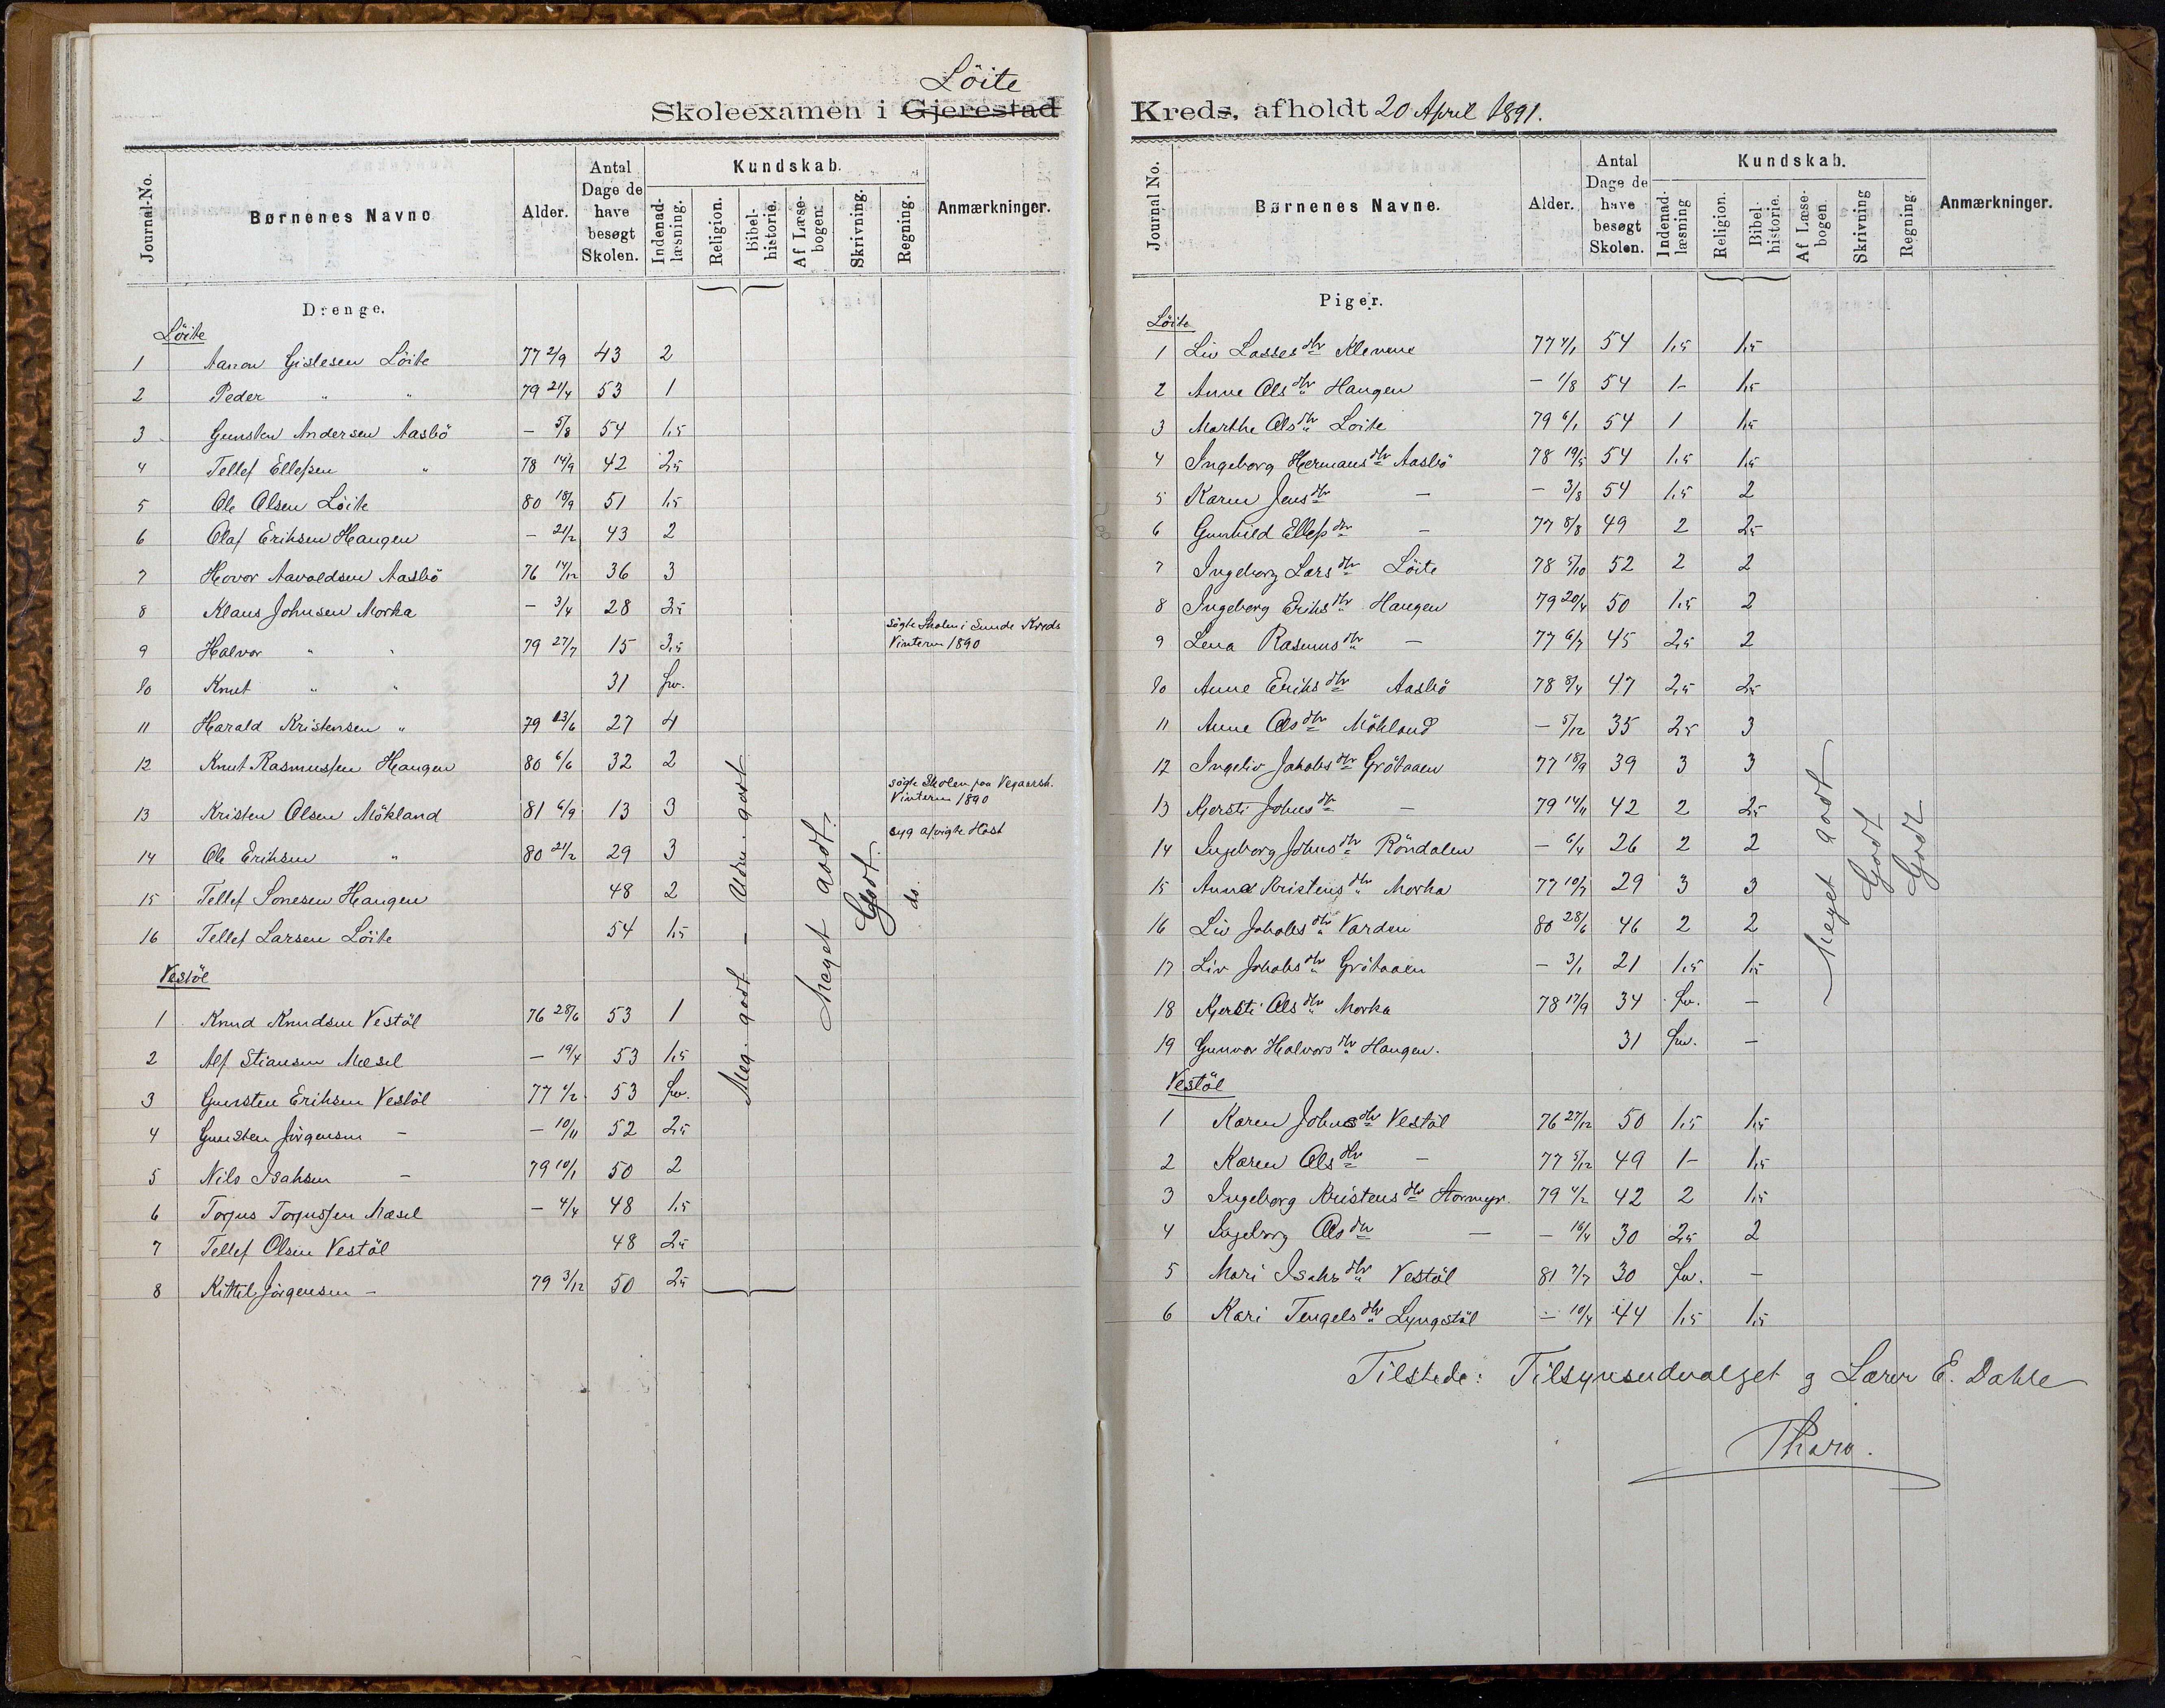 Löite
Skoleexamen i Gjerestad
Journal-No.
Børnenes Navne
Alder.
Antal Dage de have besøgt Skolen.
Kundskab.
Indenad-læsning.
Religion.
Bibel-historie.
Af Læse-bogen.
Skrivning.
Regning.
Anmærkninger.
Drenge.
Löite
1 Aanon Gislesen Löite 77 2/9 43 2
2 Peder " " 79 21/4 53 1
3 Gunsten Andersen Aasbö - 5/8 54 1,5
4 Tellef Ellefsen " 78 14/9 42 2,5
5 Ole Olsen Löite 80 18/9 51 1,5
6 Olaf Eriksen Haugen - 21/2 43 2
7 Hovor Aavoldsen Aasbö 76 14/12 36 3
8 Klaus Johnsen Morka - 3/4 28 3,5
9 Halvor " " 79 27/7 15 3,5 sögte Skolen i Sunde Kreds Vinteren 1890
10 Knut " " 31 frv.
11 Harald Kristensen " 79 23/6 27 4
12 Knut Rasmussen Haugen 80 6/6 32 2
13 Kristen Olsen Mökland 81 6/9 13 3 sögte Skolen paa Vegaarsh. Vinteren 1890
14 Ole Eriksen " 80 21/2 29 3 syg afvigte Höst
15 Tellef Sonesen Haugen 48 2
16 Tellef Larsen Löite 54 1,5
Vestöl
1 Knud Knudsen Vestöl 76 28/6 53 1
2 Alf Stiansen Mæsel - 19/4 53 1,5
3 Gunsten Eriksen Vestöl 77 1/2 53 frv.
4 Gunsten Jörgensen - - 10/11 52 2,5
5 Nils Isaksen - 79 10/1 50 2
6 Torjus Torjussen Mæsel - 4/4 48 1,5
7 Tellef Olsen Vestöl 48 2,5
8 Kittil Jörgensen - 79 3/12 50 2,5
Meg. godt - Uden. godt
Meget godt.
Godt.
do.
Kreds, afholdt 20 April 1891.
Journal No.
Børnenes Navne.
Alder.
Antal Dage de have besøgt Skolen.
Kundskab.
Indenad-læsning
Religion.
Bibel-historie.
Af Læse-bogen.
Skrivning
Regning
Anmærkninger.
Piger.
Löite
1 Liv Lassesdtr Klevene 77 4/1 54 1,5 1,5
2 Anne Olsdtr Haugen - 1/8 54 1- 1,5
3 Marthe Olsdtr Loite 79 6/1 54 1 1,5
4 Ingeborg Hermansdtr Aasbö 78 19/5 54 1,5 1,5
5 Karen Jensdtr - - 3/8 54 1,5 2
6 Gunhild Ellefsdtr - 77 8/8 49 2 2,5
7 Ingeborg Larsdtr Löite 78 5/10 52 2 2
8 Ingeborg Eriksdtr Haugen 79 20/4 50 1,5 2
9 Lena Rasmusdtr - 77 6/7 45 2,5 2
10 Anne Eriksdtr Aasbö 78 8/4 47 2,5 2,5
11 Anne Olsdtr Mökland - 5/12 35 2,5 3
12 Ingeliv Jakobsdtr Grötaaen 77 18/9 39 3 3
13 Kjersti Johnsdtr - 79 14/11 42 2 2,5
14 Ingeborg Johnsdtr Röndalen - 6/4 26 2 2
15 Anna Kristensdtr Morka 77 10/7 29 3 3
16 Liv Jakobsdtr Varden 80 28/6 46 2 2
17 Liv Jakobsdtr Grötaaen - 3/1 21 1,5 1,5
18 Kjersti Olsdtr Morka 78 17/9 34 frv. -
19 Gunvor Halvorsdtr Haugen. 31 frv. -
Vestöl
1 Karen Johnsdtr Vestöl 76 27/12 50 1,5 1,5
2 Karen Olsdtr - 77 5/12 49 1- 1,5
3 Ingeborg Kristensdtr Stormyr. 79 4/2 42 2 1,5
4 Ingeborg Olsdtr - - 16/4 30 2,5 2
5 Mari Isaksdtr Vestöl 81 7/7 30 frv. -
6 Kari Tengelsdtr Lyngstöl - 10/4 44 1,5 1,5
Meget godt
Godt
Godt
Tilstede: Tilsynsudvalget og Lærer E. Dahle